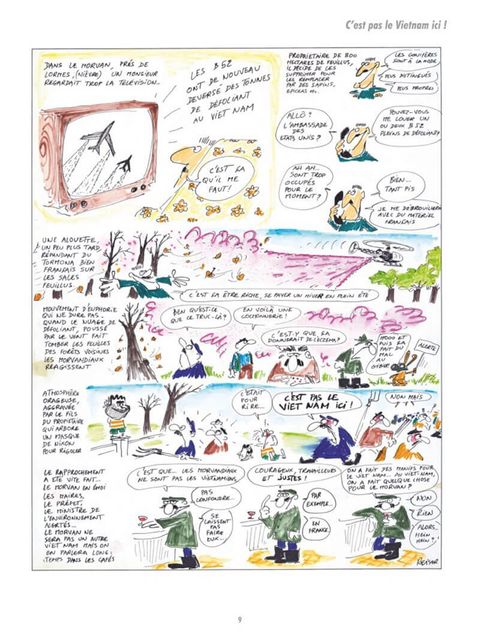 C'est pas le Vietnam ici !
DANS LE MORVAN, PRÉS DE
LORMES, (NIÈVRE) UN MONSIEUR
REGARDAIT TROP LA TÉLÉVISION.
LES B52
ONT DE NOUVEAU
DEVERSÉ DES TONNES
DE DÉFOLIANT
AU VIET NAM
C'EST ÇA
QU'IL ME
FAUT!
PROPRIÉTAIRE DE 800
HECTARES DE FEUILLUS,
IL DÉCIDE DE LES
SUPPRIMER POUR
LES REMPLACER
PAR DES SAPINS,
EPICEAS etc.
LES CONIFÈRES
SONT À LA MODE
PLUS
PLUS PROPRES
ALLÔ ?
L'AMBASSADE
DES
ETATS UNIS ?
POUVEZ-VOUS
ME LOUER UN
OU DEUX B 52
PLEINS DE DÉFOLIANT?
AH AH...
SONT TROP
OCCUPÉS
POUR LE
MOMENT ?
BIEN...
TANT
PIS
JE ME DÉBROUILLERAI
AVEC DU MATÉRIEL
FRANÇAIS
UNE ALOUETTE,
UN PEU PLUS TARD,
RÉPANDAIT DU
TORMONA BIEN
FRANÇAIS SUR
LES SALES
FEUILLUS
C'EST ÇA ÊTRE RICHE, SE PAYER UN HIVER EN PLEIN ÉTÉ
MOUVEMENT D'EUPHORIE
QUI NE DURE PAS.
QUAND LE NUAGE DE
DÉFOLIANT, POUSSÉ
PAR LE VENT FAIT
TOMBER LES FEUILLES
DES FORÊTS VOISINES
LES MORVANDIAUX
RÉAGISSENT
BEN QU'EST-CE
QUE CE TRUC-LÀ ?
EN VOILÀ UNE
COCHONNERIE!
C'EST-Y QUE ÇA
DONNERAIT DE L'ECZEMA?
ET PIS ÇA
FAIT DU
MAL
AU
GIBIER
ALERTE
ATMOSPHÈRE
ORAGEUSE,
AGGRAVÉE
PAR LE FILS
DU PROPRIÉTAIRE
QUI ARBORE
UN MASQUE
DE NIXON
POUR RIGOLER
C'ÉTAIT
POUR
RIRE...
C'EST PAS LE
VIET NAM ICI !
NON MAIS
LE RAPPROCHEMENT
A ÉTÉ VITE FAIT...
LE MORVAN EN ÉMOI
LES MAIRES,
LE PRÉFET,
LE MINISTRE DE
L'ENVIRONNEMENT
ALERTÉS...
LE MORVAN NE
SERA PAS UN AUTRE
VIET NAM MAIS ON
EN PARLERA LONG-
TEMPS DANS LES CAFÉS
C'EST QUE... LES MORVANDIAUX
NE SONT PAS LES VIETNAMIENS,
PAS
CONFONDRE..
SE
LAISSENT
PAS
FAIRE
EUX...
COURAGEUX, TRAVAILLEURS
ET JUSTES !
PAR
EXEMPLE...
EN
FRANCE
ON A FAIT DES MANIFS POUR
LE VIET NAM... AU VIET NAM,
ON A FAIT QUELQUE CHOSE
POUR LE MORVAN ?
NON
RIEN
ALORS,
HEIN
HEIN
REISER
9